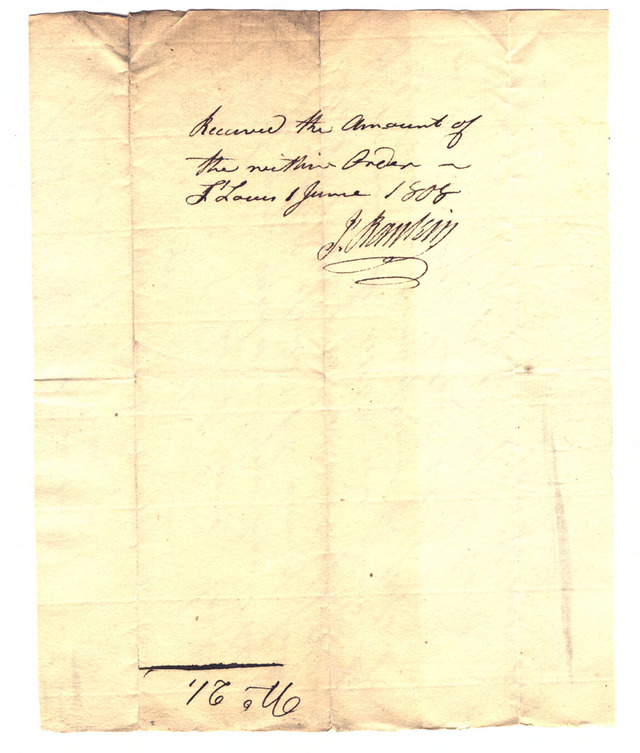 Received the Amount of
the within Order ~
St Louis 1 June 1808
Js. Rankin
No 21.